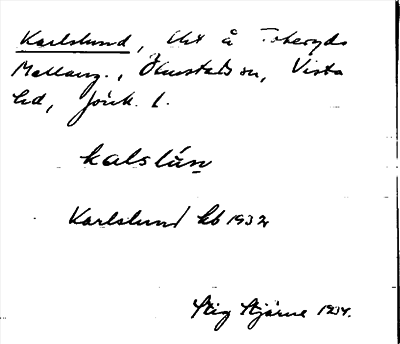 Karlslund, Ut å Toberyds
Mellang., Ölmstads sn, Vista
hd, Jönk. l.
kalslún
Karlslund kb 1932
Stig Stjärne 1934.